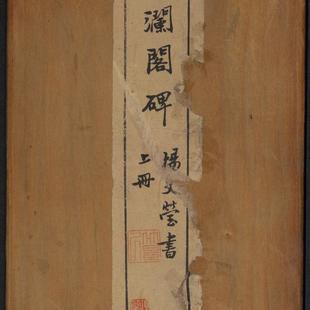 瀾閣碑
楊文瑩書
上冊